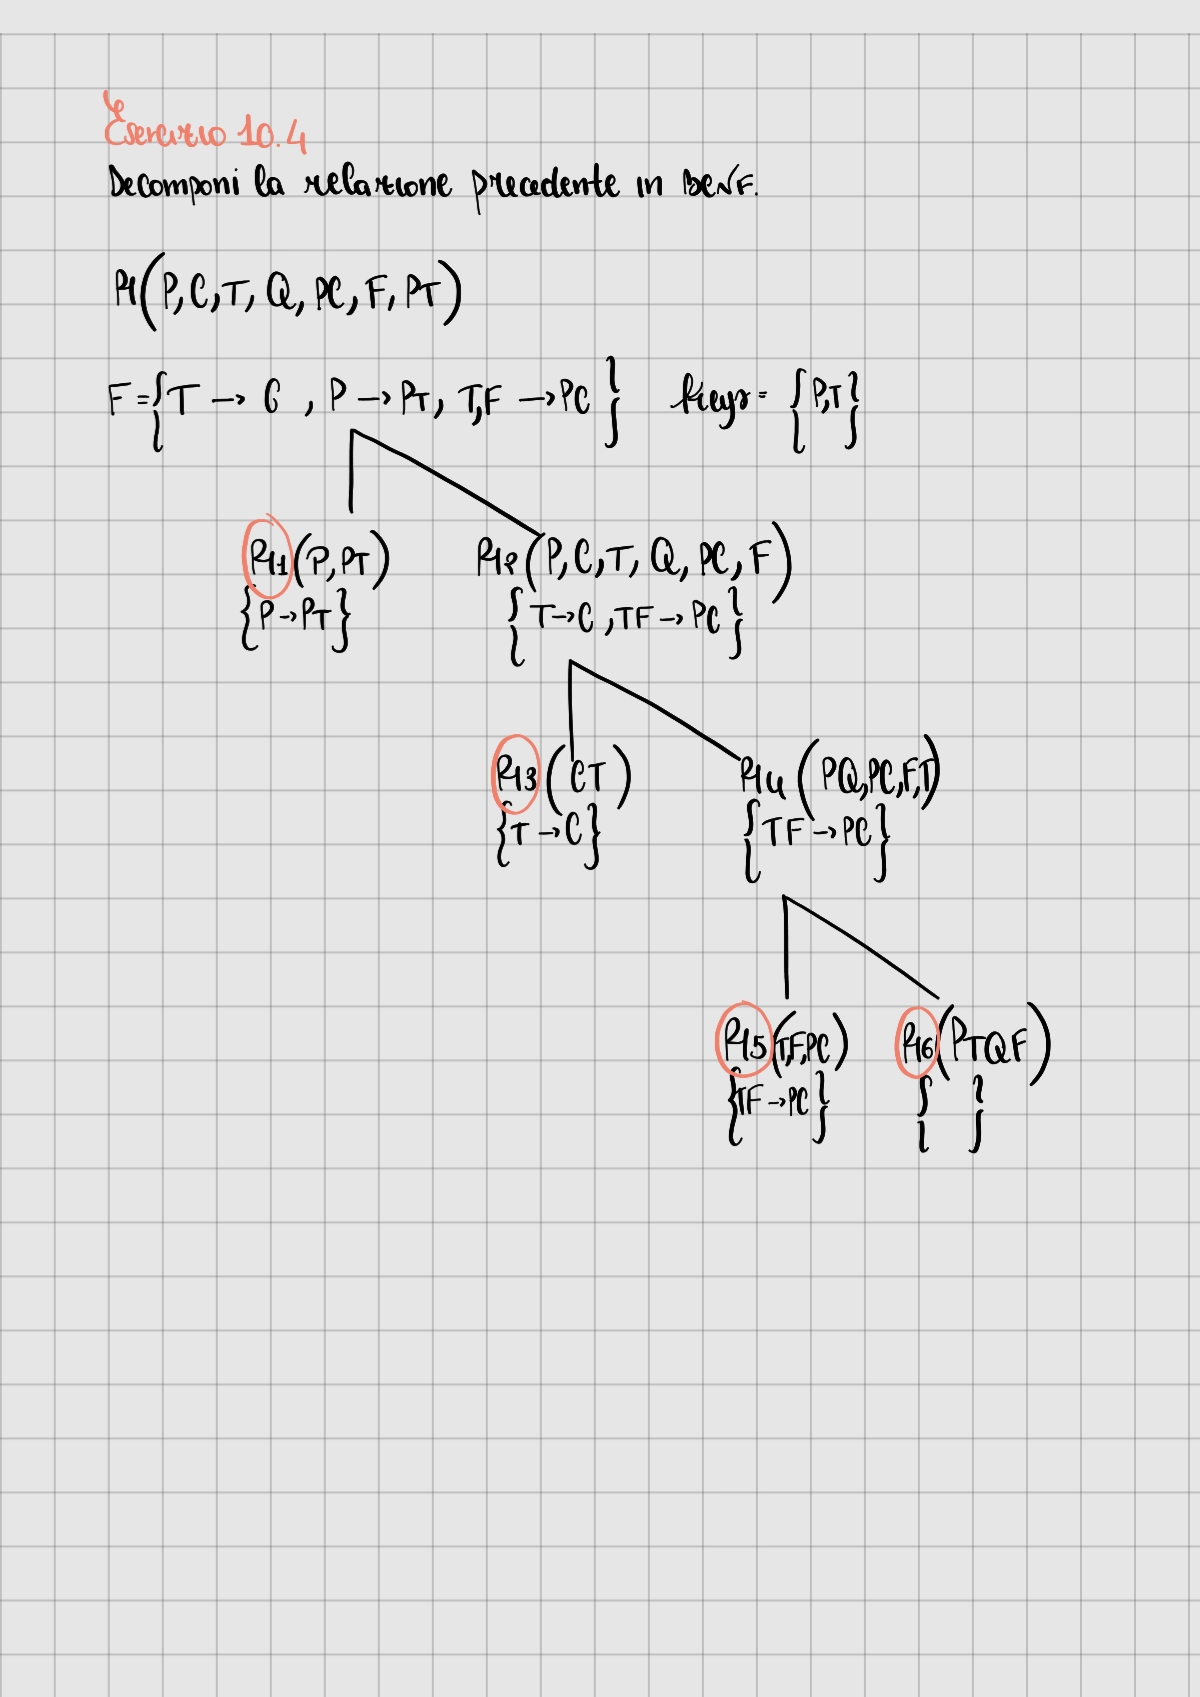 Esercizio 10.4
Decomponi la relazione precedente in BCNF.
R1(P, C, T, Q, PC, F, PT)
F = {T → C, P → PT, T,F → PC} keys = {P,T}
R11(P, PT) R12(P, C, T, Q, PC, F)
{P → PT} {T → C, TF → PC}
R13(CT) R14(PQ, PC, F, T)
{T → C} {TF → PC}
R15(T,F,PC) R16(PTQF)
{TF → PC} { }